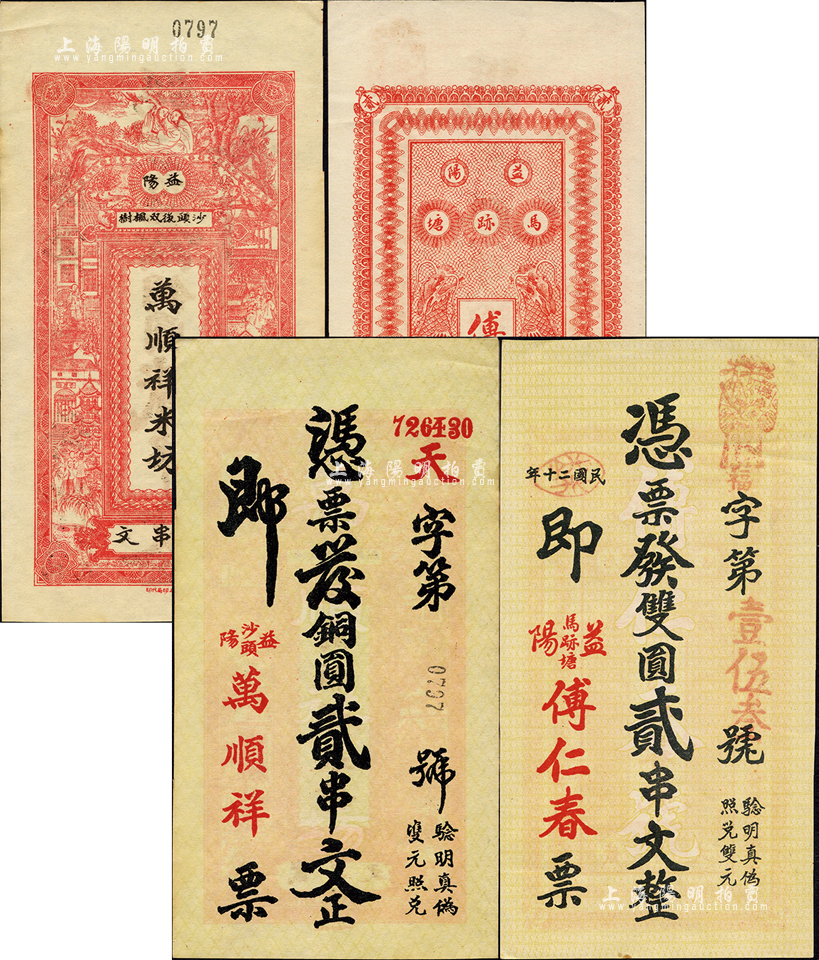 0797
上海陽明拍賣
www.yangmingauction.com
益陽
沙頭後双楓樹
萬順祥米坊
串文
貳
益陽
馬跡塘
傅
726王30
天字第0797號
驗明真偽
雙元照兌
憑票發銅圓貳串文正
即
益陽沙頭
萬順祥票
上海陽明拍賣
www.yangmingauction.com
福字第壹伍叁號
驗明真偽
照兌雙元
憑票發雙圓貳串文整
民國二十年
即
益陽馬跡塘
傅仁春票
上海陽明拍賣
www.yangmingauction.com